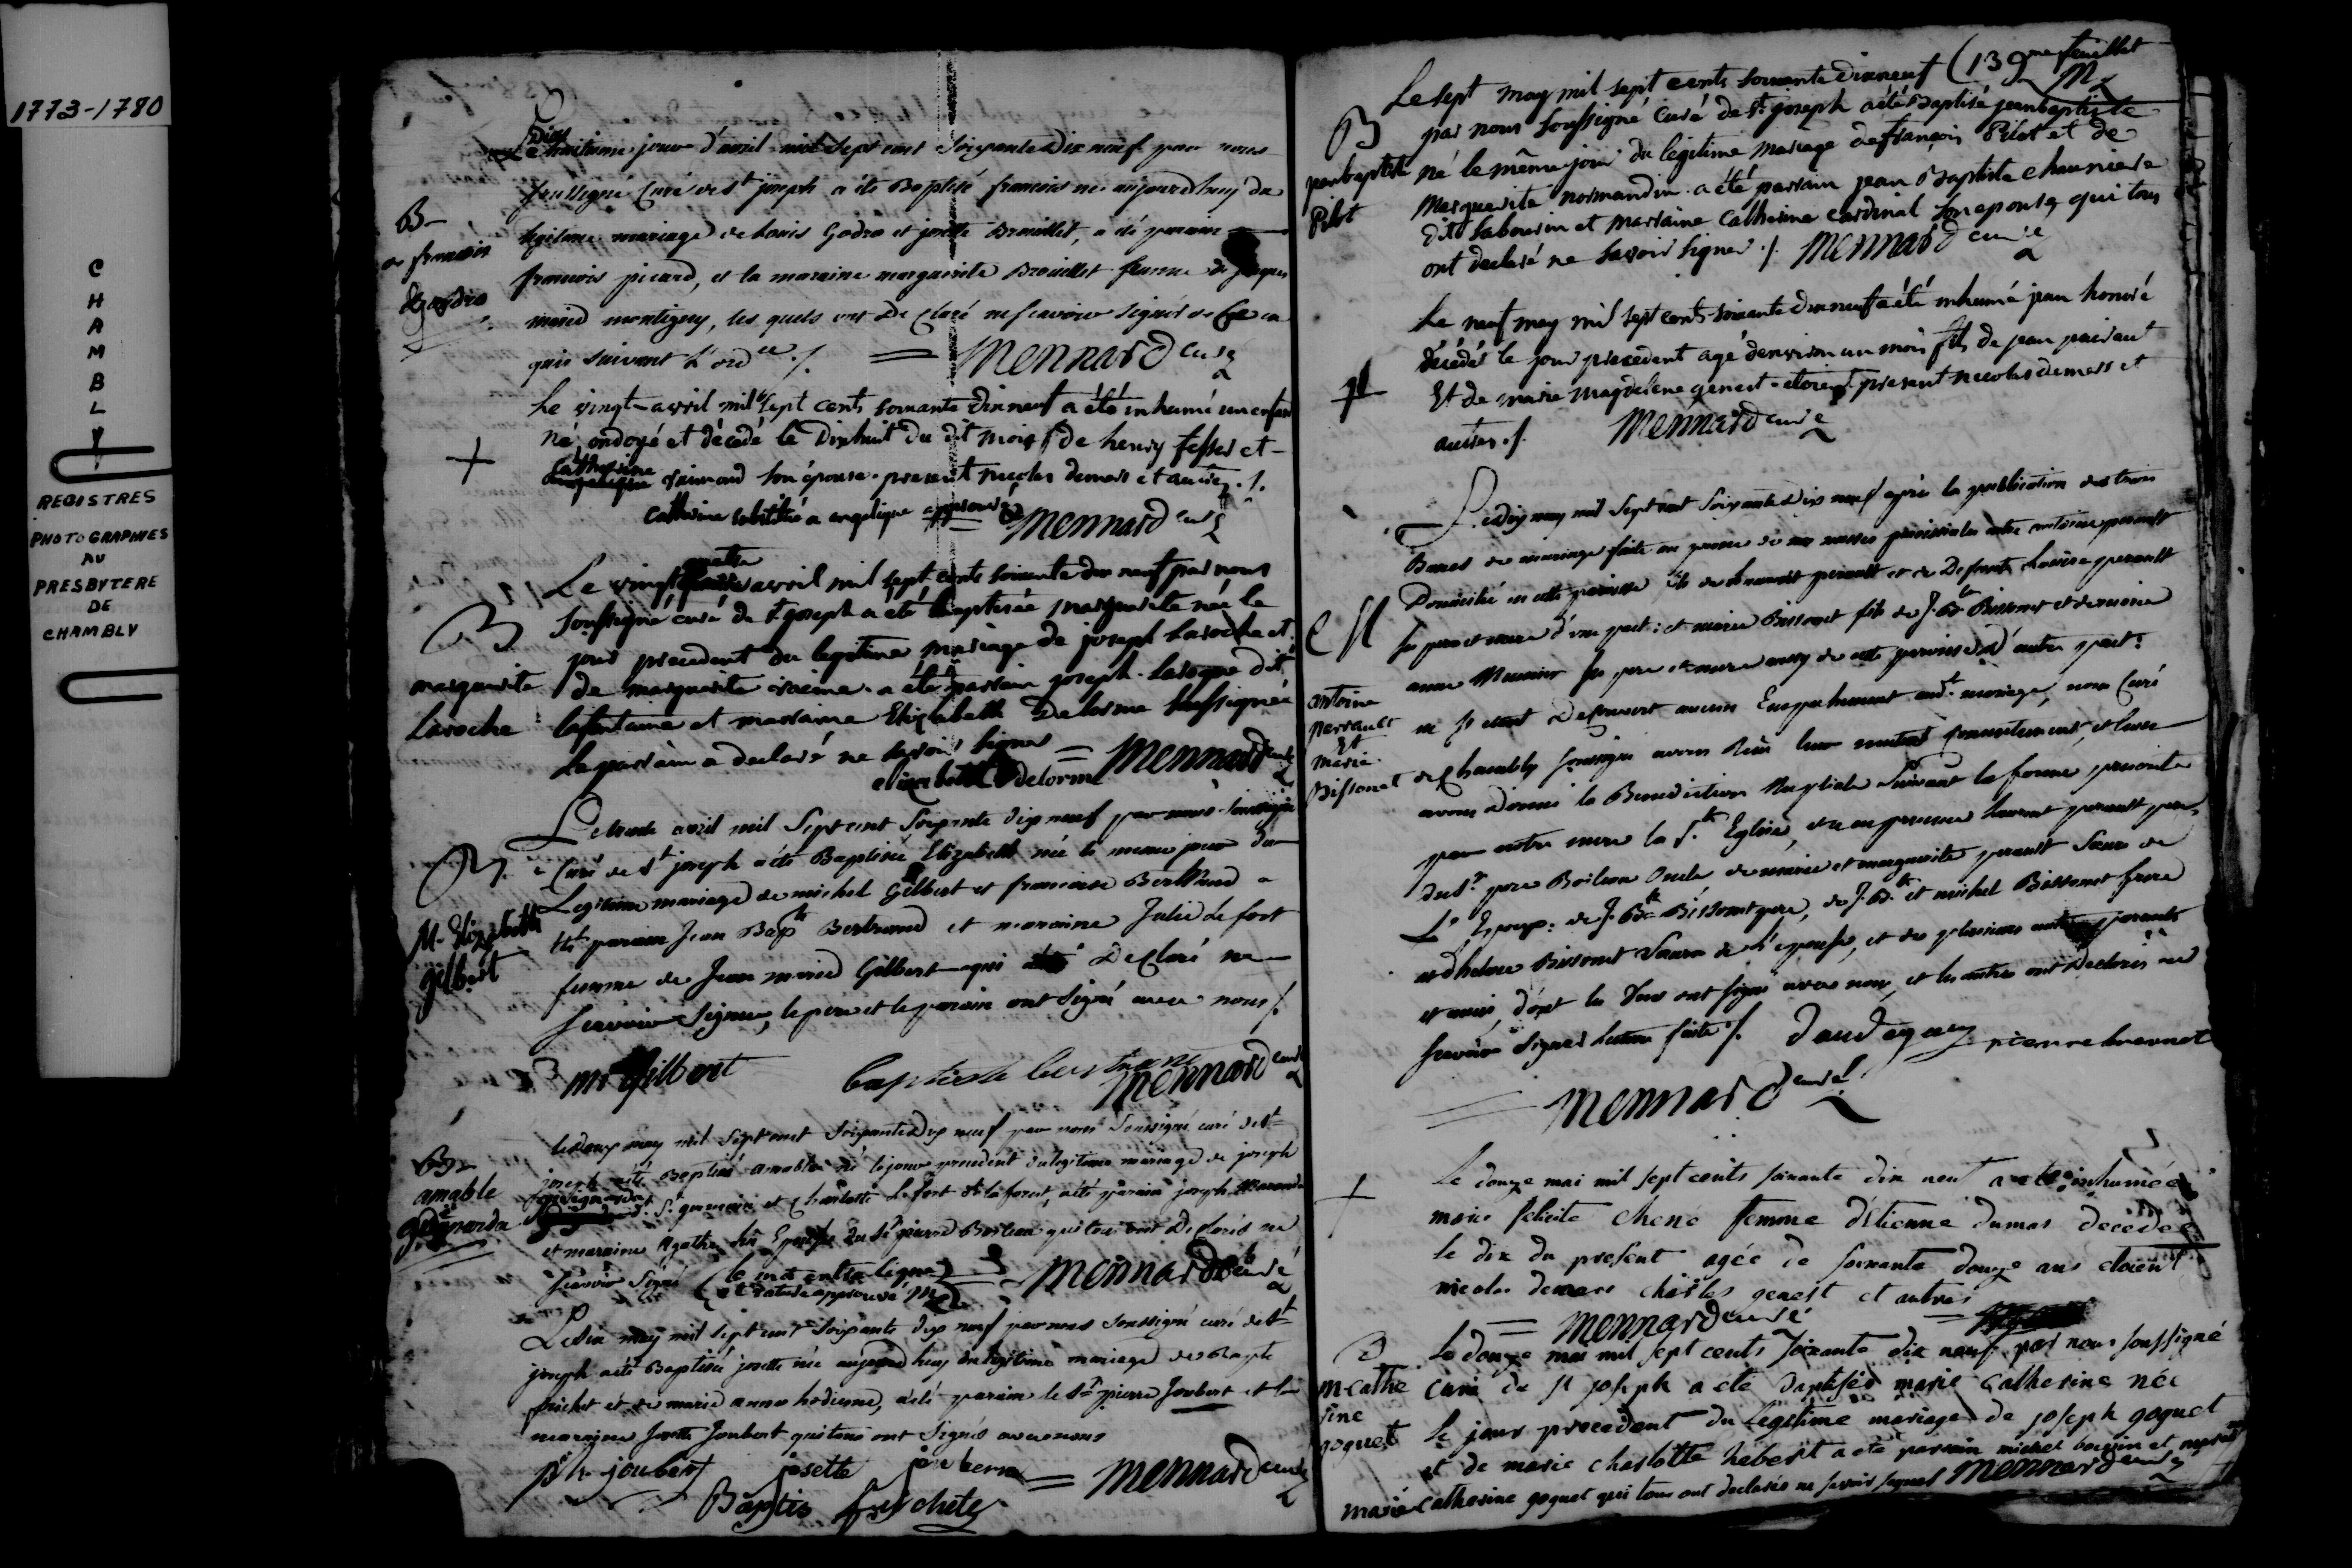 1773-1780
CHAMBLY
REGISTRES
PHOTOGRAPHIES
AU
PRESBYTERE
DE
CHAMBLY
dix
Le huitieme jour d'avril mil sept cent soixante dix neuf par nous
soussigné curé de St joseph a été Baptisé francois né aujourd'huy du
legitime mariage de Louis Godro et josette Brouillet, a été parain
francois picard, et la maraine marguerite Brouillet femme de jaques
montigny, les quels ont declaré ne scavoir signer de ce en
quis suivant l'ordce ./. = Mennard curé
B
francois
Le vingt avril mil sept cents soixante dix neuf a été inhumé un enfant
né ondoyé et décédé le dixhuit du dt mois de henry fesser et
catherine raimond son épouse. present nicolas demers et autres ./.
catherine substitué a angelique approuvé
= Mennard curé
+
Le vingt quatre avril mil sept cents soixante dix neuf par nous
soussigné curé de st joseph a été baptisée marguerite née le
jour precedent du legitime mariage de joseph Laroche et
de marguerite racine. a été parrain joseph Laroque dit
lafontaine et marraine Elizabeth Delorme soussignée
Le parrain a declaré ne savoir signer
elizabeth delorme = Mennard curé
B
marguerite
Laroche
Le trente avril mil sept cent soixante dix neuf par nous soussigné
Curé de St joseph a été Baptisée Elizabeth née le meme jour du
Legitime mariage de michel Gilbert et francoise Bertrand a
été parain Jean Bapte Bertrand et maraine Julie Lefort
femme de Jean marie Gilbert qui a declaré ne
scavoir signer, le pere et le parain ont signé avec nous ./.
B.
M. Elizabeth
gilbert
mr Gilbert baptiste bertrant Mennard curé
Le deux may mil sept cent soixante dix neuf par nous soussigné curé de St
joseph a été Baptisé amable né le jour precedent du legitime mariage de joseph
St germain et charlotte Lefort dt laforest, a été parain joseph
et maraine Agathe son Epouse du Sr pierre Boileau qui tous ont declarés ne
scavoir signé (le mot entre ligne
et rature approuvé M) Mennard curé
B
amable
Le six may mil sept cent soixante dix neuf par nous soussigné curé de St
joseph a été Baptisée josette née aujourd huy du legitime mariage de Bapte
frichet et de marie anne hodienne, a été parain le Sr pierre Joubert et la
maraine josette Joubert qui tous ont signés avec nous
prr joubert josette joubert = Mennard curé
Baptis frichete
(139me feuillet
M
Le sept may mil sept cents soixante dix neuf
par nous soussigné curé de St joseph a été Baptisé jean baptiste
né le même jour du legitime mariage de francois Pilot et de
Marguerite normandin. a été parrain jean Baptiste chauniere
dit Sabourin et marraine Catherine Cardinal son epouse qui tous
ont declaré ne savoir signer ./. Mennard curé
B
jean baptiste
Pilot
Le neuf may mil sept cents soixante dix neuf a été inhumé jean honoré
décédé le jour precedent agé d'environ un mois fils de jean
Et de marie Magdelene genest. etoient present nicolas demers et
autres ./. Mennard curé
Le dix may mil sept cent soixante dix neuf après la publication des trois
Bancs de mariage faite au prosne de nos messes paroissiales entre antoine perault
Domicilié en cette paroisse fils de perault et de Defunte Louise perault
ses pere et mere d'une part: et marie Bissonet fille de J. Bte Bissonet et de marie
anne Meunier ses pere et mere aussy de cette paroisse d'autre part:
ne s'etant decouvert aucun Empechement audt mariage, nous Curé
de Chambly soussigné avons reçu leur mutuel consentement, et leur
avons donné la Benediction Nuptiale suivant la forme prescrite
par notre mere la Ste Eglise, et en presence Laurent perault
du Sr pierre Boileau oncle de marie et marguerite perault soeur de
L'Epoux: de J. Bte Bissonet pere, de J. Bte et michel Bissonet frere
et d'helene Bissonet soeur de l'epouse, et de plusieurs autres parents
et amis, dont les uns ont signé avec nous, et les autres ont declarés ne
scavoir signer lecture faite ./. Daudegan pierre brunet
= Mennard curé
M
antoine
perrault
Et
Marie
Bissonet
+
Le douze mai mil sept cents soixante dix neuf a été inhumée
marie felicite chene femme d'étienne dumas decedee
le dix du present agée de soixante douze ans etoient
nicolas demers charles genest et autres
= Mennard curé
Le douze mai mil sept cents soixante dix neuf par nous soussigné
curé de st joseph a été baptisée marie catherine née
le jour precedent du legitime mariage de joseph goguet
et de marie charlotte hébert a été parrain michel et
marie catherine goguet qui tous ont declarés ne savoir signer Mennard curé
B
m cathe
rine
goguet